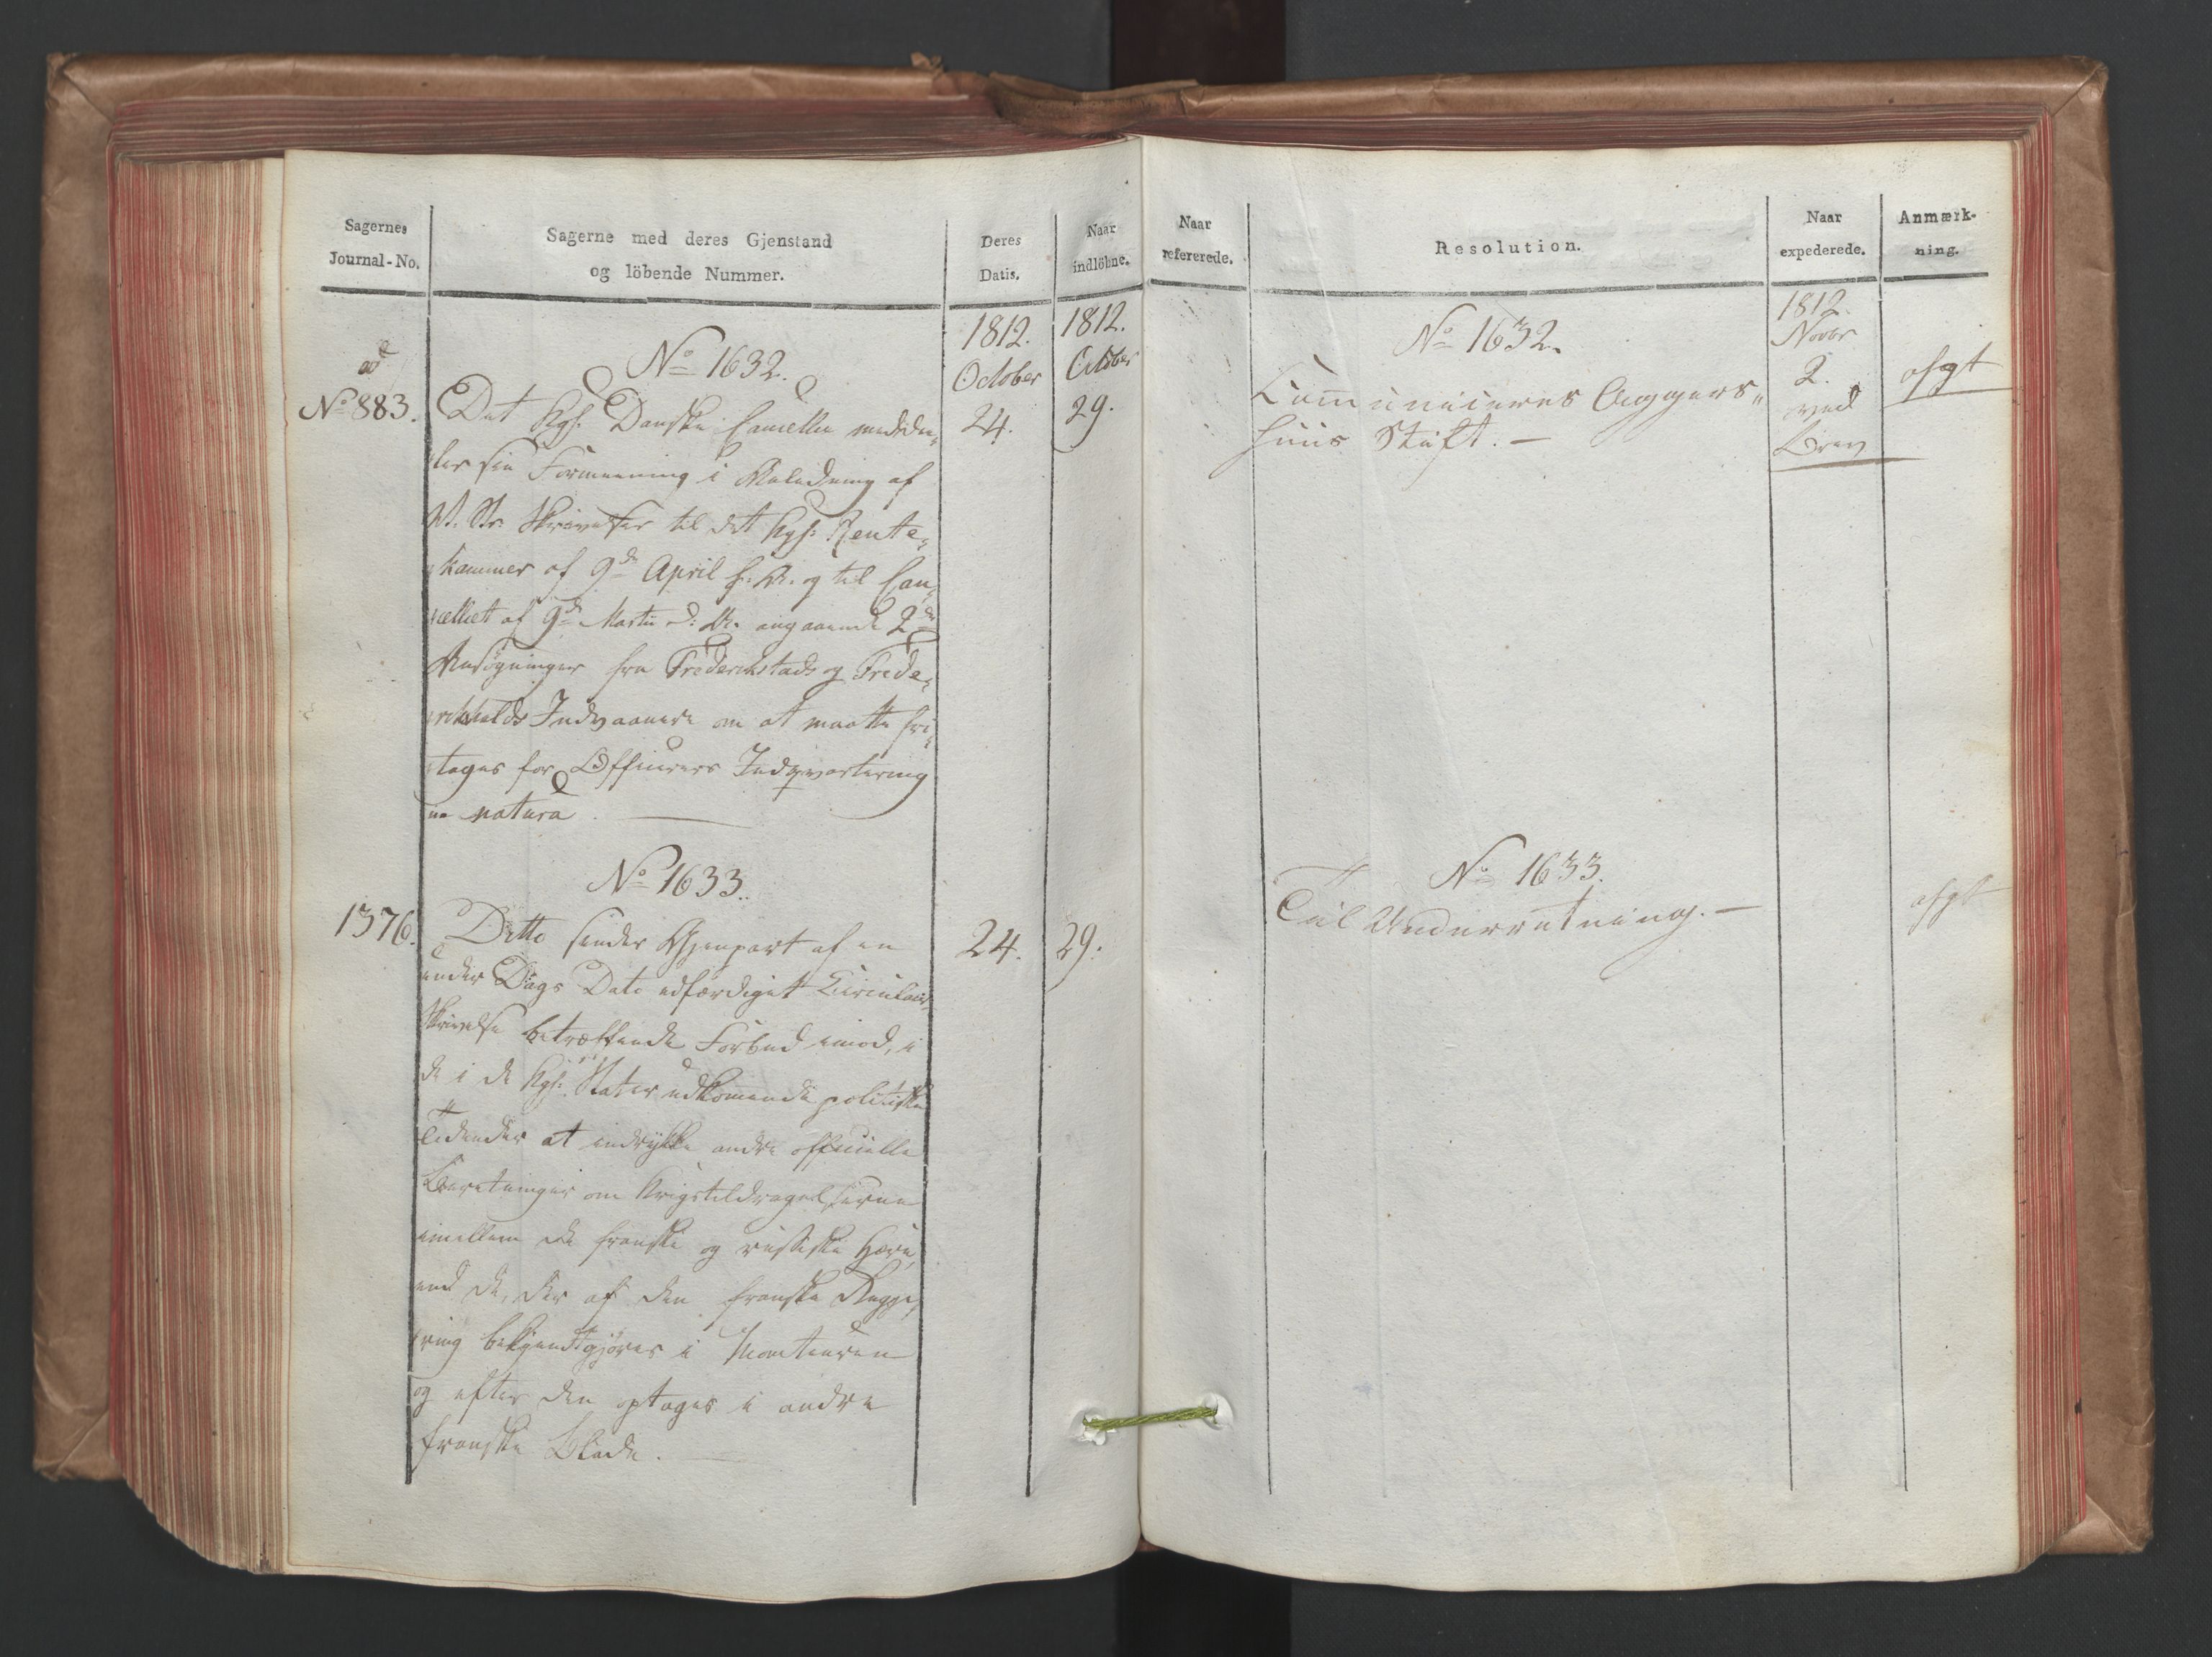 Sagernes
Journal-No.
Sagerne med deres Gjenstand
og löbende Nummer.
Deres
Datis.
Naar
indlöbne.
ad
No 883.
1812.
October
24.
1812.
October
29.
No 1632.
Det Kgl. Danske Cancellie meddee-
ler sin Formeening i Anledning af
St. Skrivelser til det Kgl. Rente-
kammer af 9de April f. A. og til Can-
celliet af 9de Martii d: A. angaaende 2de
Ansøgninger fra Frederikstads og Frede-
rikshalds Indvaanere om at maatte fri-
tages for Officerers Indqvartering
in natura.
No 1633.
1376.
24.
29.
Ditto sender Gjenpart af en
under Dags Dato udfærdiget Circulair
Skrivelse betræffende Forbud imod, i
de i de Kgl. Stater udkommende politiske
Tidender at indrykke andre officielle
Beretninger om Krigstildragelserne
imellem de franske og russiske Hære,
end de, der af den franske Regje-
ring bekjendtgjøres i Moniteuren
og efter den optages i andre
franske Blade.
Naar
refererede.
Resolution.
Naar
expederede.
Anmærk-
ning.
No 1632.
Communiceres Aggers-
huus Stift. —
1812.
Novbr
2.
ved
Brev
afgt
No 1633.
Til Underretning. —
afgt